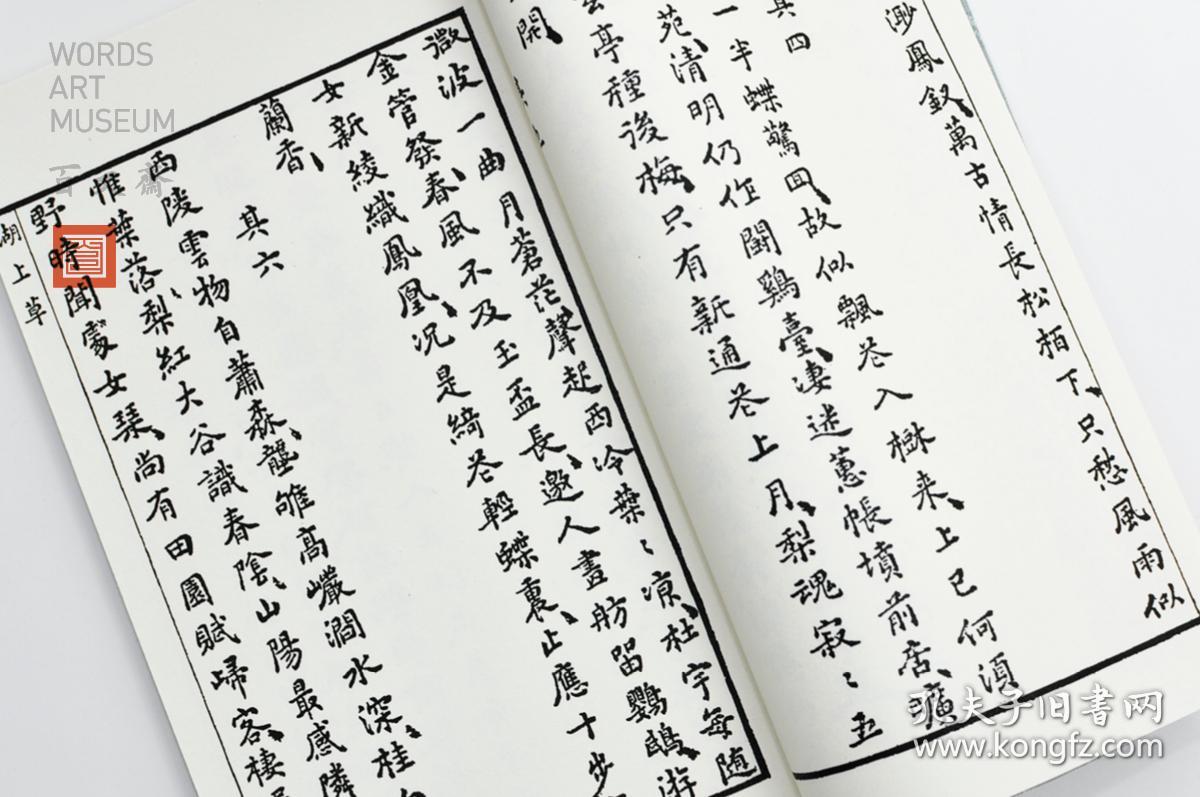 渺鳳釵萬古情長松栢下只愁風雨似
其四
一半蝶驚回故似飄花入樹来上巳何須
苑清明仍作鬬鷄臺凄迷蕙帳墳前
亭種後梅只有新通花上月梨魂寂〻玉
開
微波一曲月蒼茫聲起西泠葉〻凉杜宇每随
金管發春風不及玉盃長邀人畫舫留鸚鵡游
女新綾織鳳凰况是綺花輕蝶裏止應十步
蘭香
其六
西陵雲物自蕭森高巘澗水深桂
惟葉落梨紅大谷識春陰山陽最感隣
野時聞處女琹尚有田園賦歸客棲
湖上草
WORDS
ART
MUSEUM
百 齋
孔夫子旧书网
www.kongfz.com